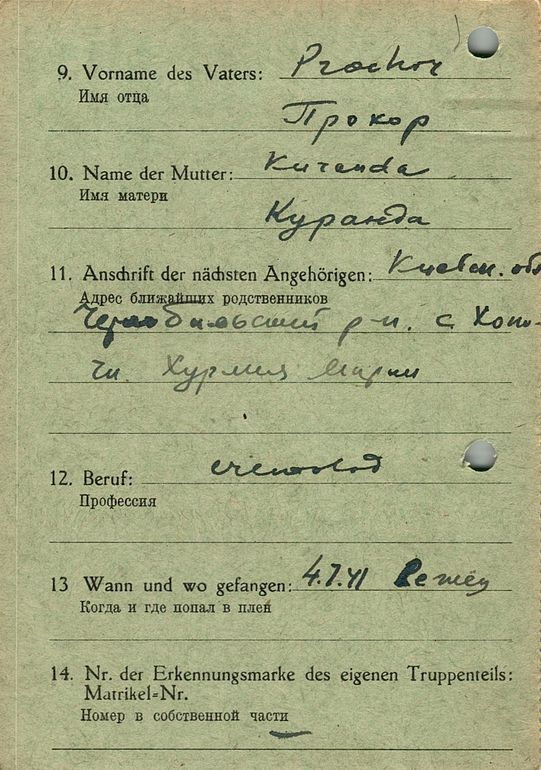 9. Vorname des Vaters: Prochor
Имя отца
Прокор
10. Name der Mutter: Kuranda
Имя матери
Куранда
11. Anschrift der nächsten Angehörigen: Киевск. обл
Адрес ближайших родственников
р-н. с
Марии
12. Beruf:
Профессия
13 Wann und wo gefangen: 4.7.41
Когда и где попал в плен
14. Nr. der Erkennungsmarke des eigenen Truppenteils:
Matrikel=Nr.
Номер в собственной части